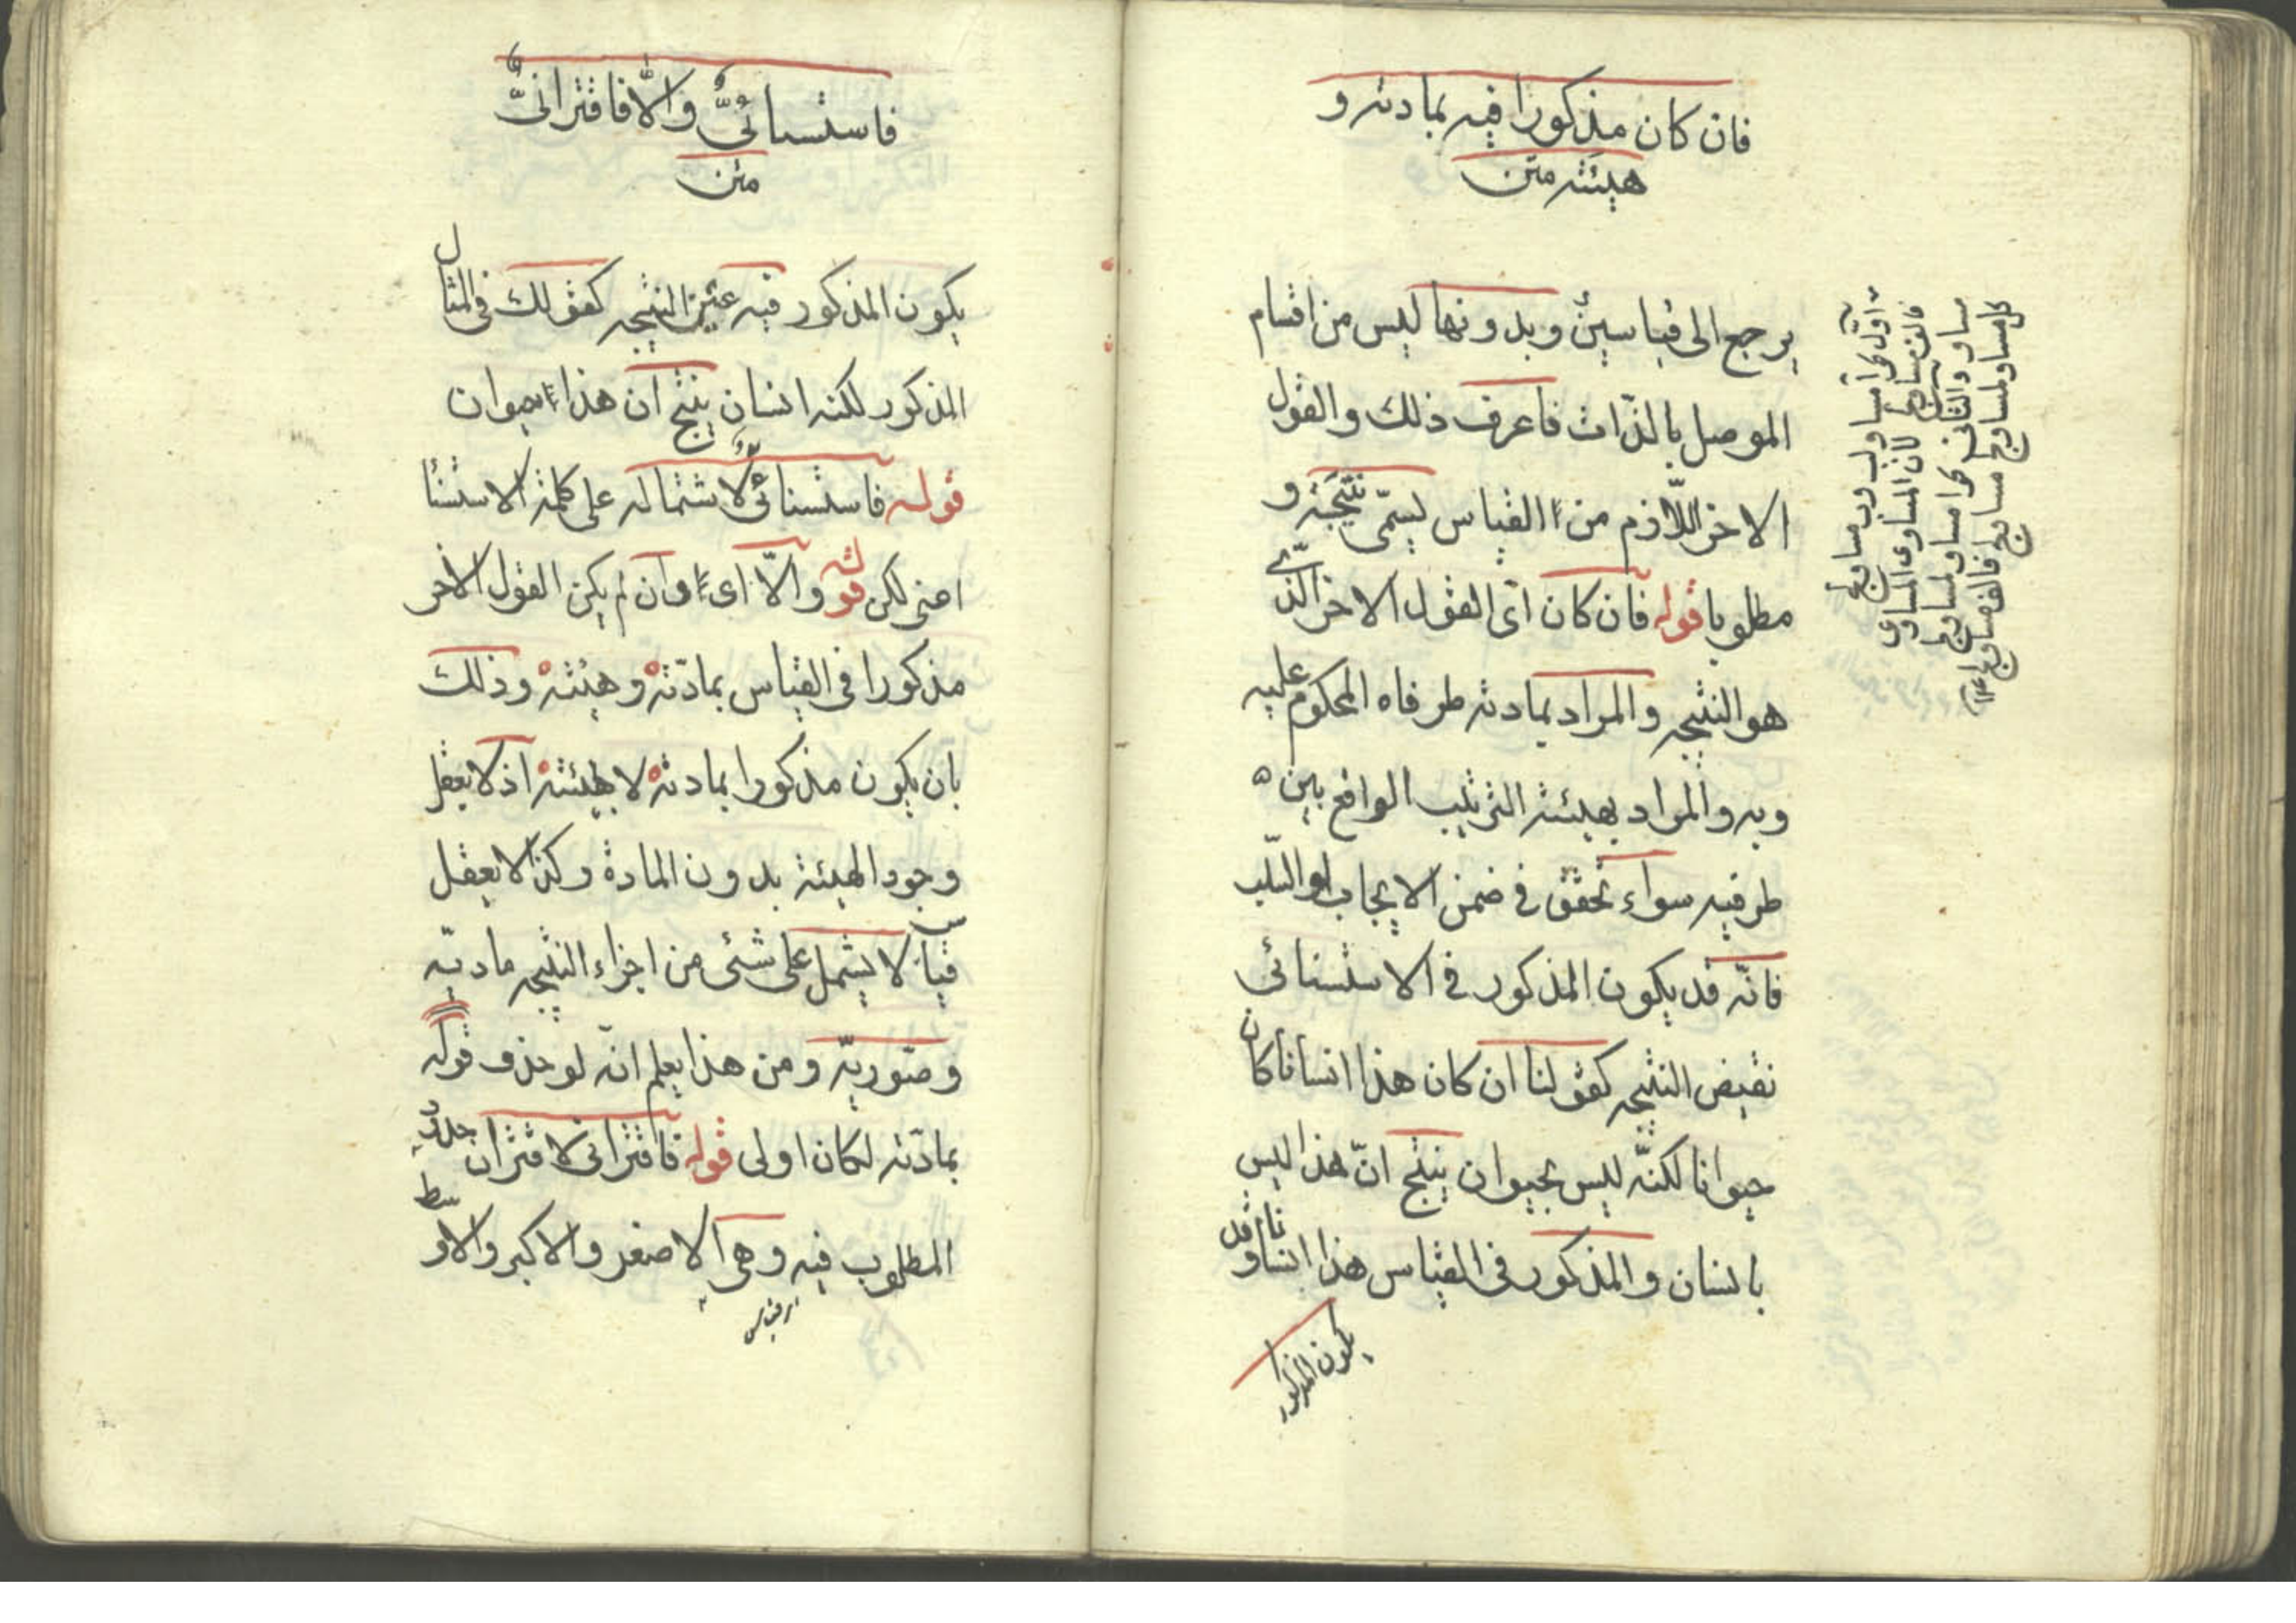 فان كان مذكورا فيه بمادته و
هيئته متن
يرجع الى قياسين وبدونها ليس من اقسام
الموصل بالذّات فاعرف ذلك والقول
الاخر اللّازم من القياس يسمّى نتيجة و
مطلوبا قوله فان كان اى القول الاخر الّذى
هو النتيجه والمراد بمادته طرفاه المحكوم عليه
وبه والمراد بهيئته الترتيب الواقع بين
طرفيه سواء تحقق فى ضمن الايجاب او السّلب
فانّه قد يكون المذكور فى الاستثنائى
نقيض النتيجه كقولنا ان كان هذا انسانا كان
حيوانا لكنّه ليس بحيوان ينتج انّ هذا ليس
بانسان والمذكور فى القياس هذا انسان وقد
يكون المذكور
كل مساو لمساوى ج مساو ج فالف مساو ج
مساو والثانى
لان المساوى المساوى
فاستثنائىٌّ والّا فاقترانىٌّ
متن
يكون المذكور فيه عين النتيجه كقولك فى المثال
المذكور لكنه انسان ينتج ان هذا حيوان
قوله فاستثنائىٌّ لاشتماله على كلمة الاستثنا
اعنى لكن قوله والّا اى وان لم يكن القول الاخر
مذكورا فى القياس بمادّته وهيئته وذلك
بان يكون مذكورا بمادته لا بهيئته اذ لا يعقل
وجود الهيئة بدون المادة وكذا لا يعقل
قياس لا يشتمل على شئى من اجزاء النتيجه ماديه
وصوريّه ومن هذا يعلم انّه لو حذف قوله
بمادّته لكان اولى قوله فاقترانى لاقتران حدود
المطلوب فيه وهى الاصغر والاكبر والاوسط